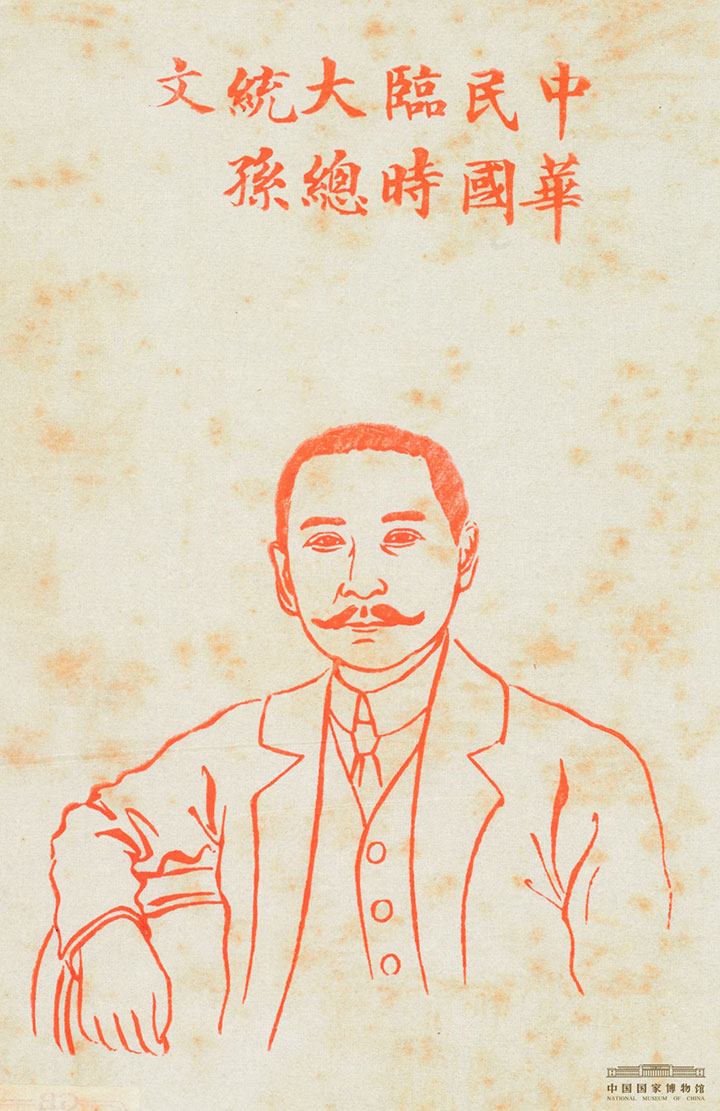 中華
民國
臨時
大總
統孫
文
中国国家博物馆
NATIONAL MUSEUM OF CHINA